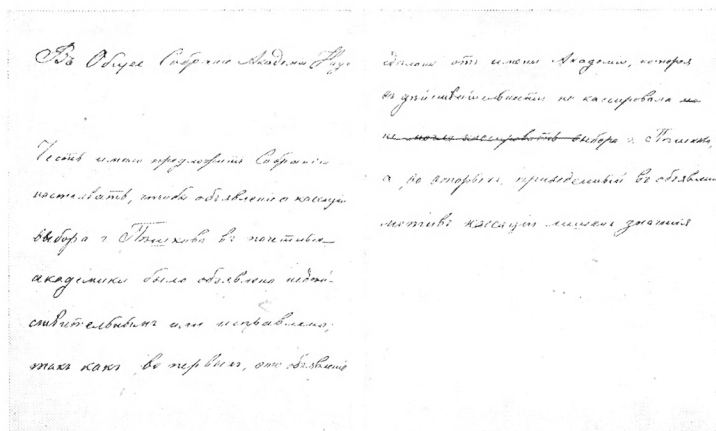 Въ Общее Собранiе Академiи Наукъ
Честь имѣю предложить Собранiю
настаивать, чтобы объявленiе о кассацiи
выбора г Пѣшкова въ почетные
академики было объявлено недѣй-
ствительнымъ или исправлено,
такъ какъ во первыхъ, это объявленiе
сдѣлано отъ имени Академiи, которая
въ дѣйствительности не кассировала
не могла кассировать выбора г. Пѣшкова,
а во вторыхъ, приводимый въ объявленiи
мотивъ кассацiи лишенъ значенiя